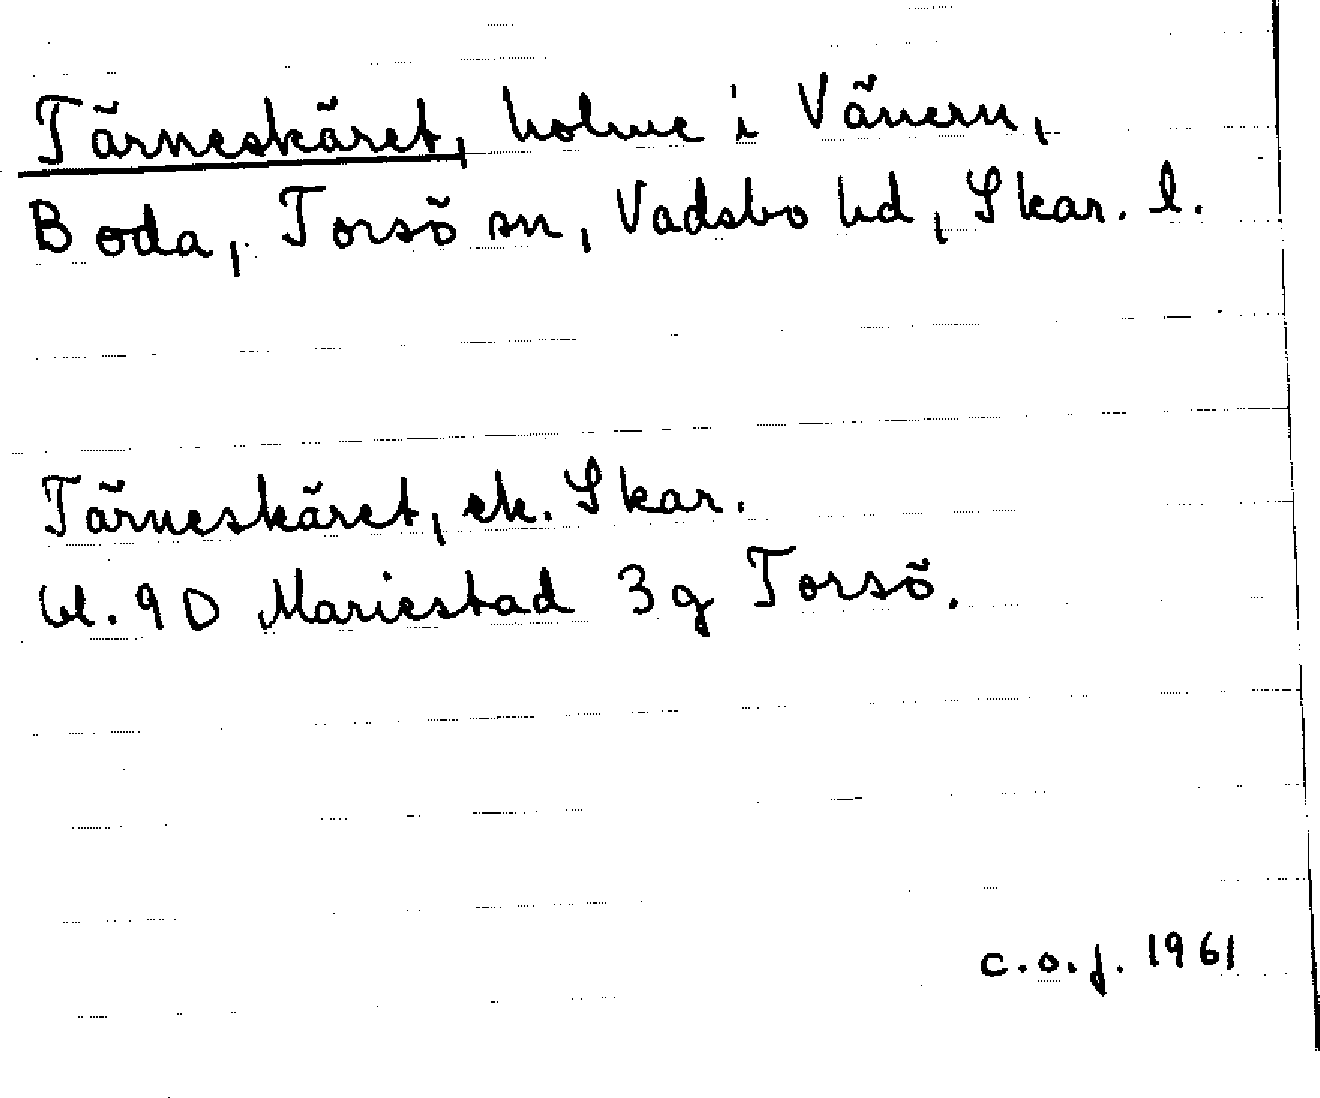 Tärneskäret, holme i Vänern,
Boda, Torsö sn, Vadsbo hd, Skar. l.
Tärneskäret, ek. Skar.
bl. 9D Mariestad 3g Torsö.
c.o.j. 1961